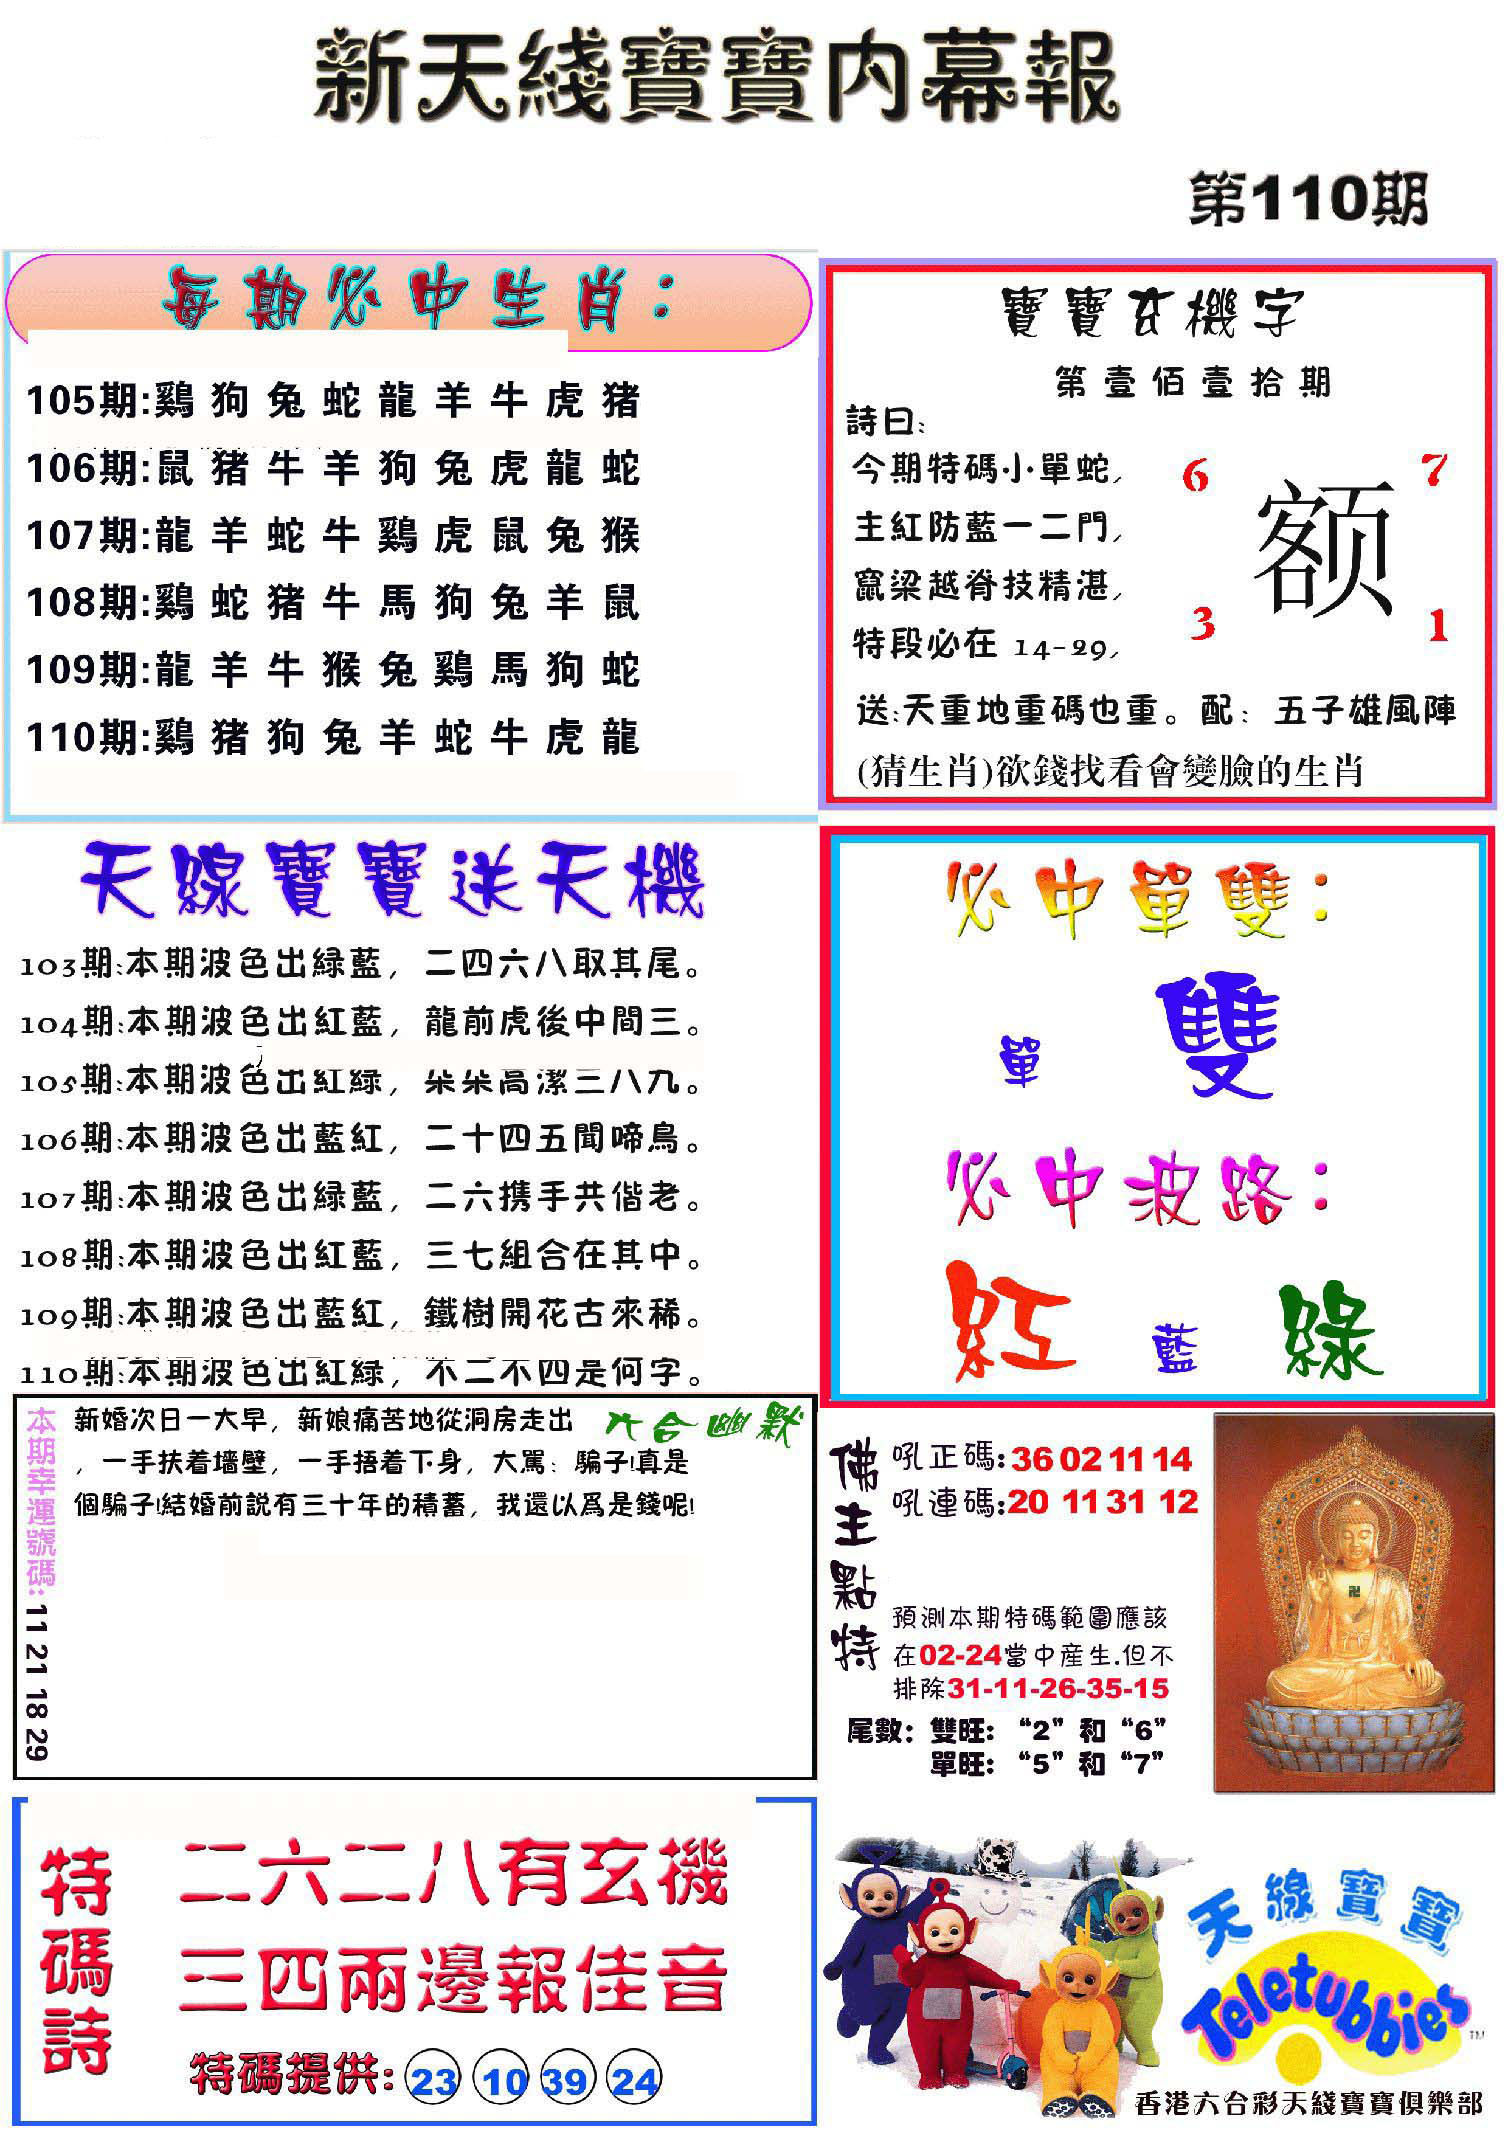 新天綫寶寶内幕報
第110期
每期必中生肖：
105期:鷄狗兔蛇龍羊牛虎猪
106期:鼠猪牛羊狗兔虎龍蛇
107期:龍羊蛇牛鷄虎鼠兔猴
108期:鷄蛇猪牛馬狗兔羊鼠
109期:龍羊牛猴兔鷄馬狗蛇
110期:鷄猪狗兔羊蛇牛虎龍
寶寶玄機字
第壹佰壹拾期
詩曰:
今期特碼小單蛇,
主紅防藍一二門,
竄梁越脊技精湛,
特段必在 14-29,
6 7
额
3 1
送:天重地重碼也重。配：五子雄風陣
(猜生肖)欲錢找看會變臉的生肖
天線寶寶送天機
103期:本期波色出緑藍，二四六八取其尾。
104期:本期波色出紅藍，龍前虎後中間三。
105期:本期波色出紅緑，朵朵高潔三八九。
106期:本期波色出藍紅，二十四五聞啼鳥。
107期:本期波色出緑藍，二六携手共偕老。
108期:本期波色出紅藍，三七組合在其中。
109期:本期波色出藍紅，鐵樹開花古來稀。
110期:本期波色出紅緑，不二不四是何字。
必中單雙：
單 雙
必中波路：
紅 藍 綠
本期幸運號碼: 11 21 18 29
六合幽默
新婚次日一大早，新娘痛苦地從洞房走出
，一手扶着墻壁，一手捂着下身，大駡：騙子!真是
個騙子!結婚前説有三十年的積蓄，我還以爲是錢呢!
佛主點特
吼正碼:36 02 11 14
吼連碼:20 11 31 12
預測本期特碼範圍應該
在02-24當中産生.但不
排除31-11-26-35-15
尾數：雙旺：“2”和“6”
單旺：“5”和“7”
卍
特碼詩
二六二八有玄機
三四兩邊報佳音
特碼提供: 23 10 39 24
天線寶寶
Teletubbies
TM
香港六合彩天綫寶寶俱樂部